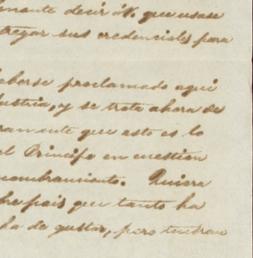 mente decir á V. que usase
tregar sus credenciales para
haberse proclamado aqui
ustria, y se trata ahora de
ramente que este es lo
el Principe en cuestion
nombramiento. Quiera
bre pais que tanto ha
ha de gustar, pero tendran